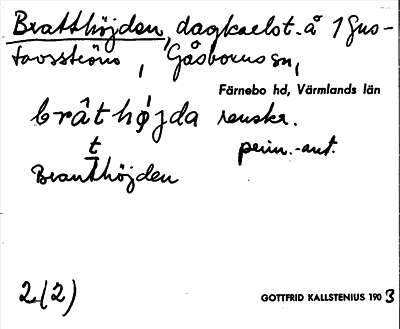 Bratthöjden, dagkarlst. å 1 Gus-
tavsströms, Gåsborns sn,
Färnebo hd, Värmlands län
brâthǿjda renskr.
t perm.-ant.
Branthöjden
2(2) GOTTFRID KALLSTENIUS 1903